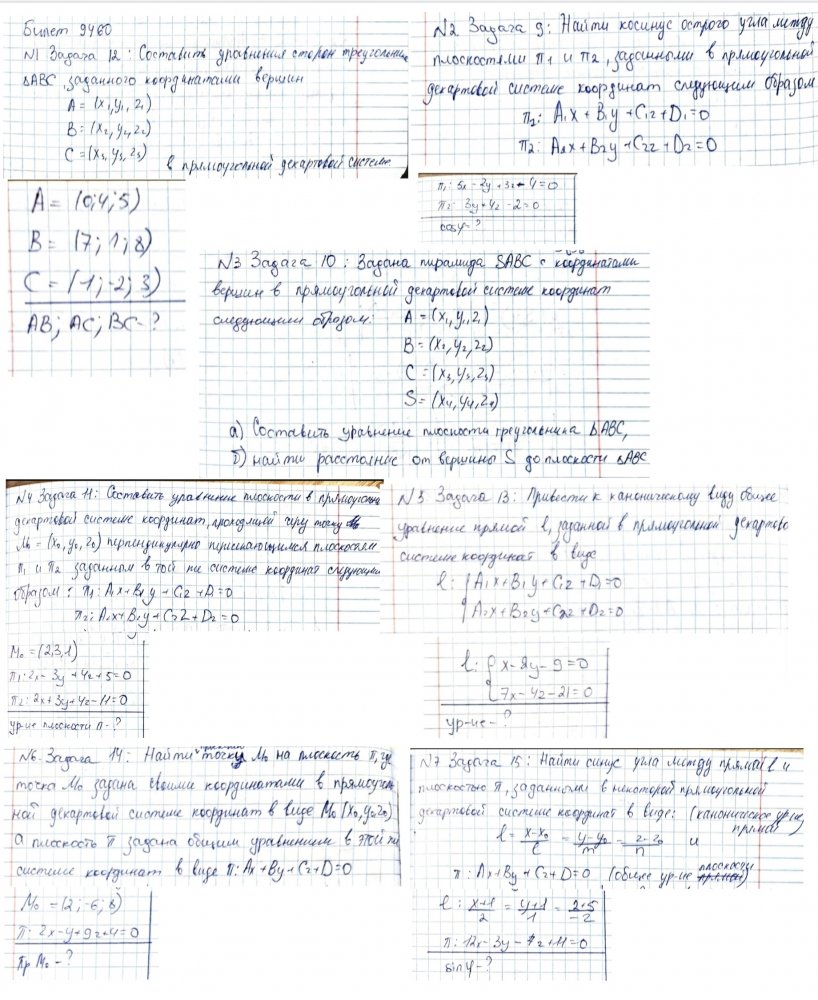 Билет 9460
N1 Задача 12: Составить уравнения сторон треугольник
ΔABC, заданного координатами вершин
A = (x₁, y₁, z₁)
B = (x₂, y₂, z₂)
C = (x₃, y₃, z₃)
в прямоугольной декартовой системе
A = (0; 4; 5)
B = (7; 1; 8)
C = (-1; -2; 3)
AB; AC; BC - ?
N2 Задача 9: Найти косинус острого угла между
плоскостями π₁ и π₂, заданными в прямоугольной
декартовой системе координат следующим образом
π₁: A₁x + B₁y + C₁z + D₁ = 0
π₂: A₂x + B₂y + C₂z + D₂ = 0
π₁: 5x - 2y + 3z - 4 = 0
π₂: 3y + 4z - 2 = 0
cos φ - ?
N3 Задача 10: Задана пирамида SABC с координатами
вершин в прямоугольной декартовой системе координат
следующим образом:
A = (x₁, y₁, z₁)
B = (x₂, y₂, z₂)
C = (x₃, y₃, z₃)
S = (x₄, y₄, z₄)
а) Составить уравнение плоскости треугольника ΔABC,
б) найти расстояние от вершины S до плоскости ΔABC
N4 Задача 11: Составить уравнение плоскости в прямоугольно
декартовой системе координат, проходящей через точку
M₀ = (x₀, y₀, z₀) перпендикулярно пересекающимся плоскостям
π₁ и π₂ заданным в той же системе координат следующим
образом: π₁: A₁x + B₁y + C₁z + D₁ = 0
π₂: A₂x + B₂y + C₂z + D₂ = 0
M₀ = (2,3,1)
π₁: 2x - 3y + 4z + 5 = 0
π₂: 2x + 3y + 4z - 11 = 0
ур-ие плоскости π - ?
N5 Задача 13: Привести к каноническому виду общее
уравнение прямой l, заданной в прямоугольной декартово
системе координат в виде
l: { A₁x + B₁y + C₁z + D₁ = 0
A₂x + B₂y + C₂z + D₂ = 0
l: { x - 2y - 9 = 0
7x - 4z - 21 = 0
ур-ие - ?
N6. Задача 14: Найти точку M₀ на плоскость π, где
точка M₀ задана своими координатами в прямоуголь
ной декартовой системе координат в виде M₀ (x₀, y₀, z₀)
а плоскость π задана общим уравнением в этой же
системе координат в виде π: Ax + By + Cz + D = 0
M₀ = (2; -6; 8)
π: 2x - y + 9z + 4 = 0
пр M₀ - ?
N7 Задача 15: Найти синус угла между прямой l и
плоскостью π, заданными в некоторой прямоугольной
декартовой системе координат в виде: (каноническое ур-ие
прямой
l = (x-x₀)/l = (y-y₀)/m = (z-z₀)/n и
π: Ax + By + Cz + D = 0 (общее ур-ие плоскости)
l: (x+1)/2 = (y+1)/1 = (z+5)/-2
π: 12x - 3y - 4z + 11 = 0
sin φ - ?